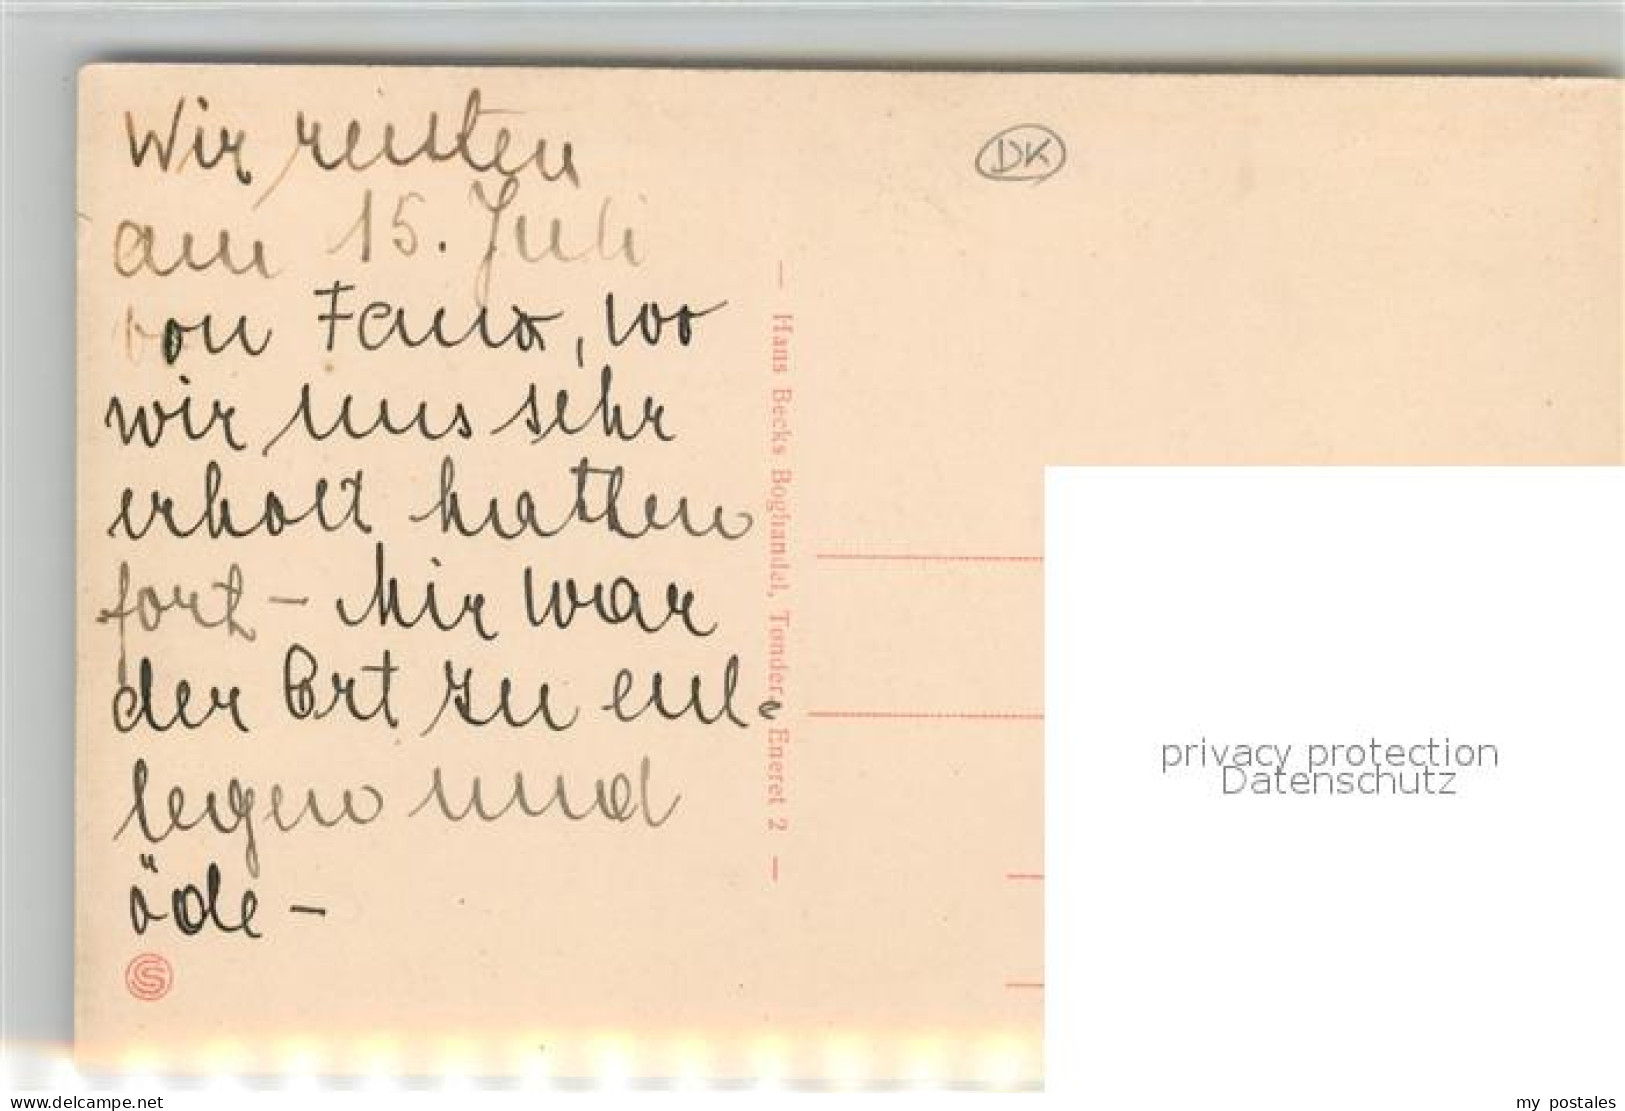 Wir reisten
am 15. Juli
von Fanø, wo
wir uns sehr
erholt hatten
fort – Mir war
der Ort zu ent-
legen und
öde –
DK
— Hans Becks Boghandel, Tønder. Eneret 2 —
privacy protection
Datenschutz
www.delcampe.net
my_postales